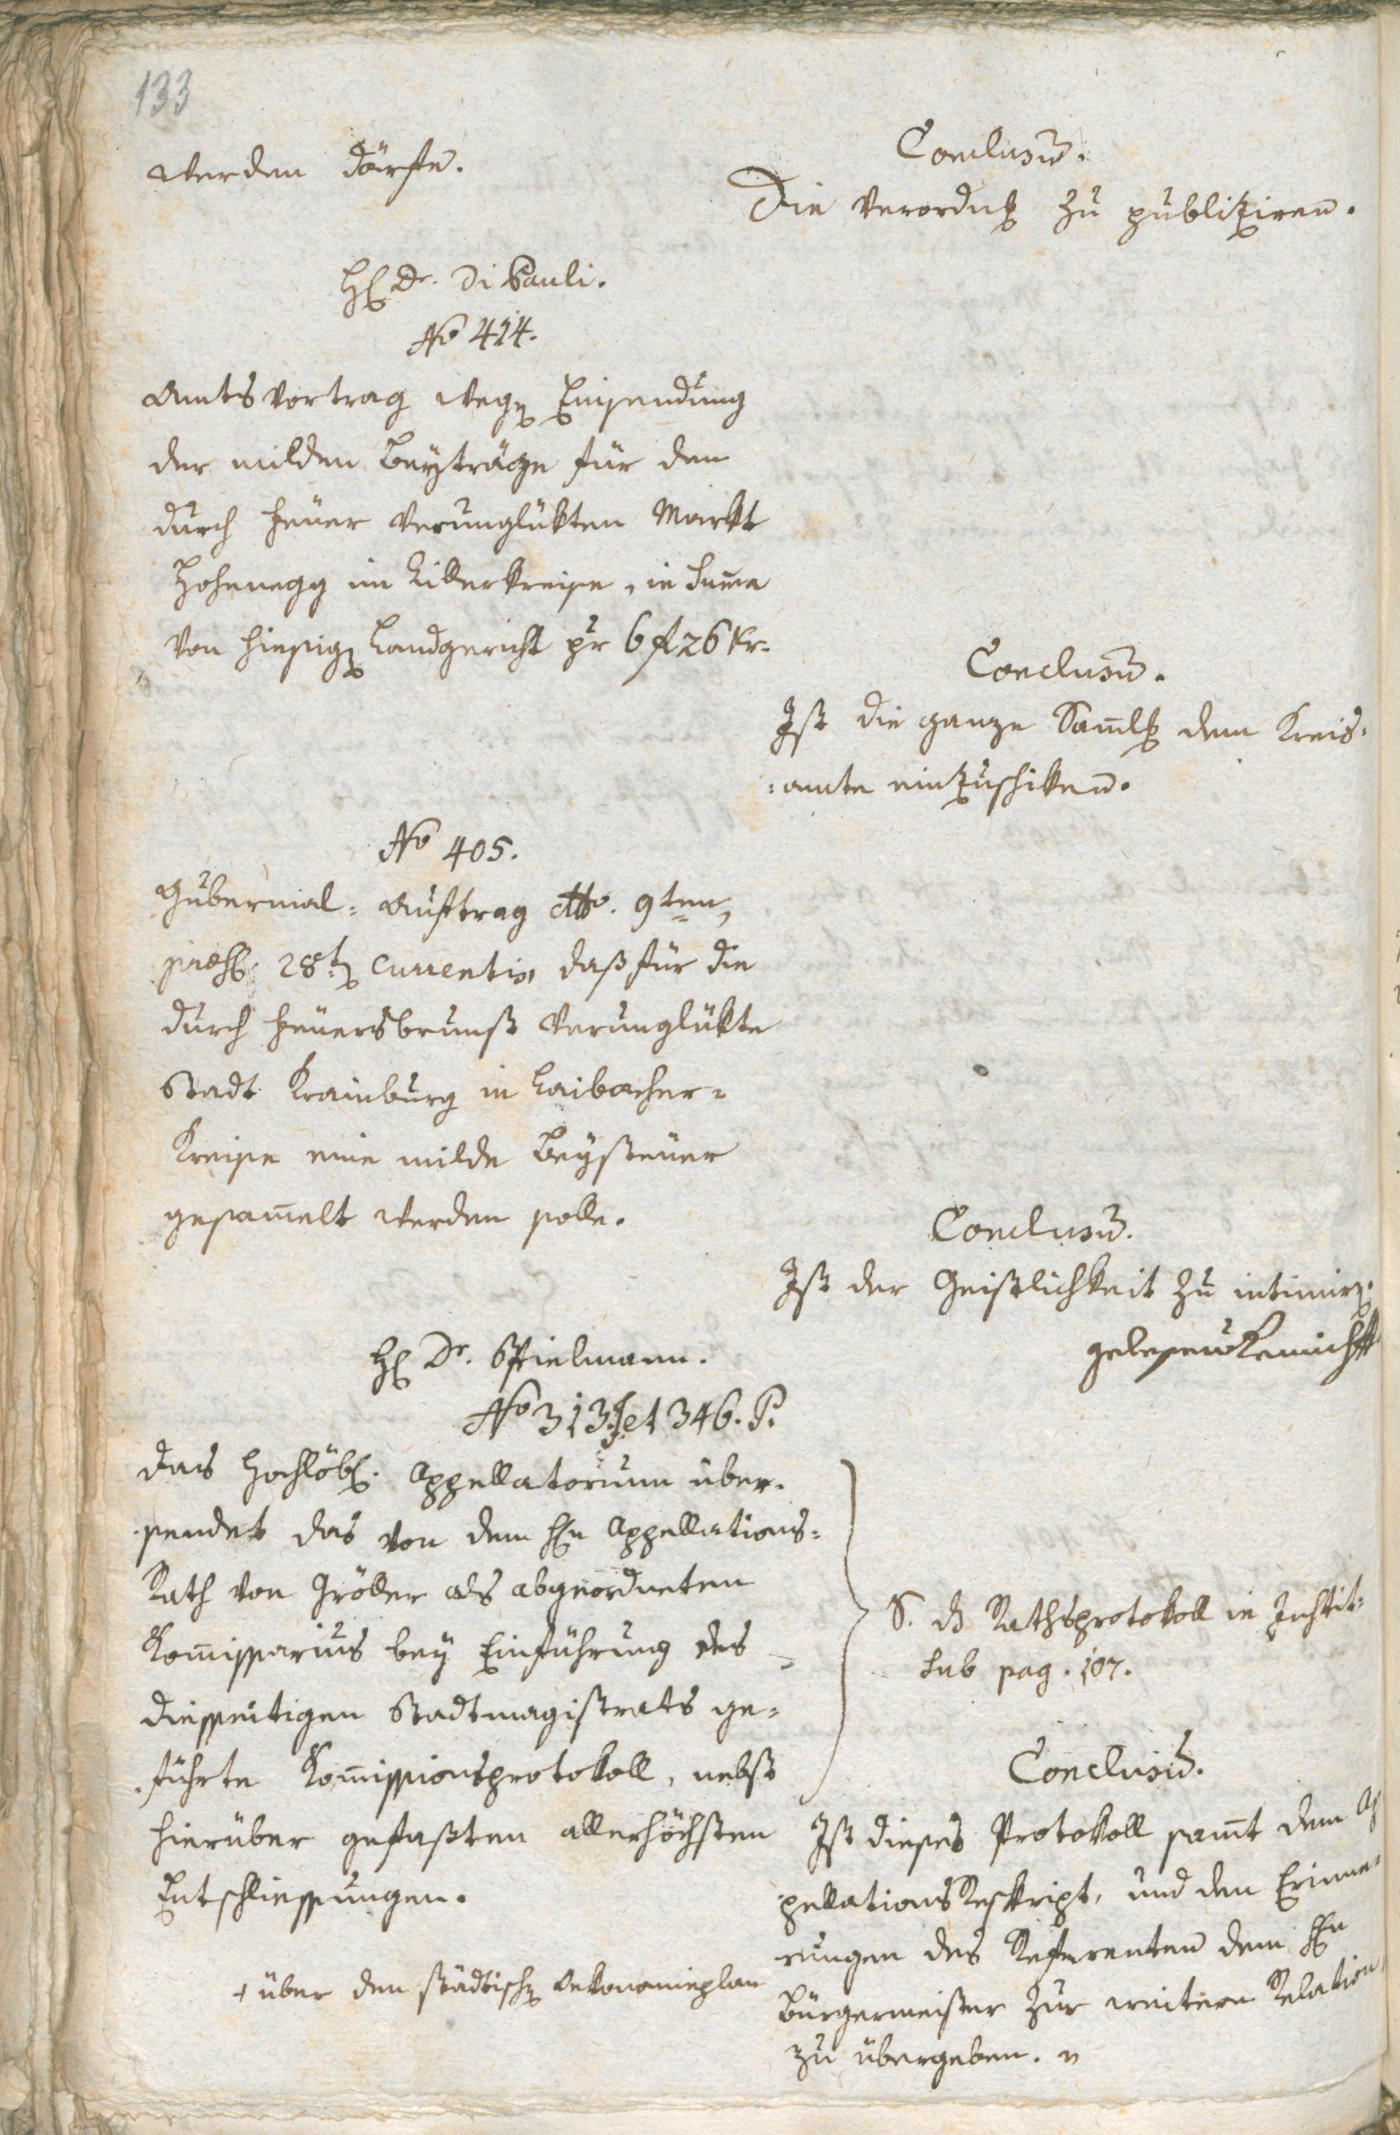 133
werden dörfte.
Conclusum.
Die Verordng zu publiziren.
H. Dr. Di Pauli.
No 414.
Amtsvortrag wegen Einsendung
der milden Beyträge für den
durch Feuer verunglükten Markt
Hohenegg im Cillerkreise, in Summa
von hiesigen Landgericht pr 6 f 26 kr.
Conclusum.
Ist die ganze Samlg dem Kreis-
amte einzuschiken.
No 405.
Gubernial-Auftrag ddto. 9ten,
praes. 28ten currentis, daß für die
durch Feuersbrunst verunglükte
Stadt Krainburg in Laibacher-
Kreise eine milde Beysteuer
gesammelt werden solle.
Conclusum.
Ist der Geistlichkeit zu intimiren.
gelesen
H. Dr. Spielmann.
No 313. et 346. P.
Das Hochlöbl. Appellatorium über-
sendet das von dem Hn Appellations-
Rath von Gröller als abgeordneten
Kommissarius bey Einführung des
diesseitigen Stadtmagistrats ge-
führte Kommissionsprotokoll, nebst
hierüber gefaßten allerhöchsten
Entschliessungen.
+ über den städtischen Oekonomieplan
S. das Rathsprotokoll in Justit:
sub pag. 107.
Conclusum.
Ist dieses Protokoll sammt dem Ap
pellationsReskript, und den Erinne-
rungen des Referenten dem Hn
Bürgermeister zur weitern Relation
zu übergeben.